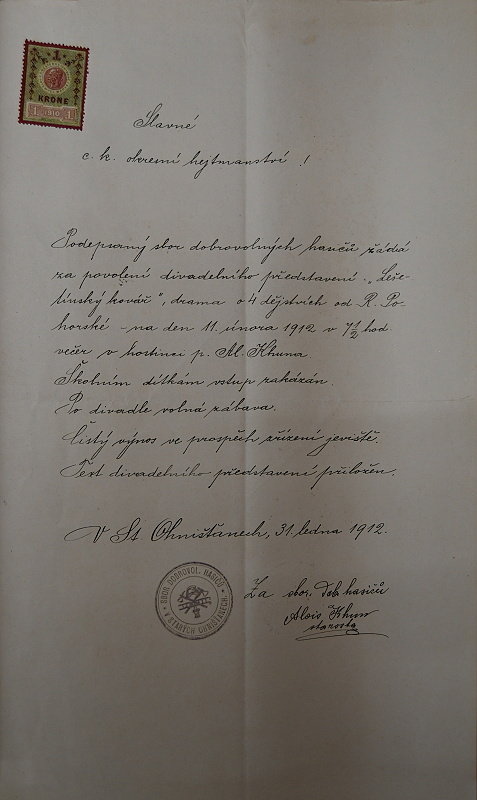 1
KRONE
1 1910 1
Slavné
c. k. okresní hejtmanství!
Podepsaný sbor dobrovolných hasičů žádá
za povolení divadelního představení „Leše-
tínský kovář", drama o 4 dějstvích od R. Po-
horské – na den 11. února 1912 v 7 1/2 hod
večer v hostinci p. Al. Khuna.
Školním dítkám vstup zakázán.
Po divadle volná zábava.
Čistý výnos ve prospěch zřízení jeviště.
Text divadelního představení přiložen.
V St. Chništanech, 31. ledna 1912.
Za sbor. dob. hasičů
Alois Khun
starosta
SBOR DOBROVOL. HASIČŮ
V STARÝCH CHNIŠTANECH.